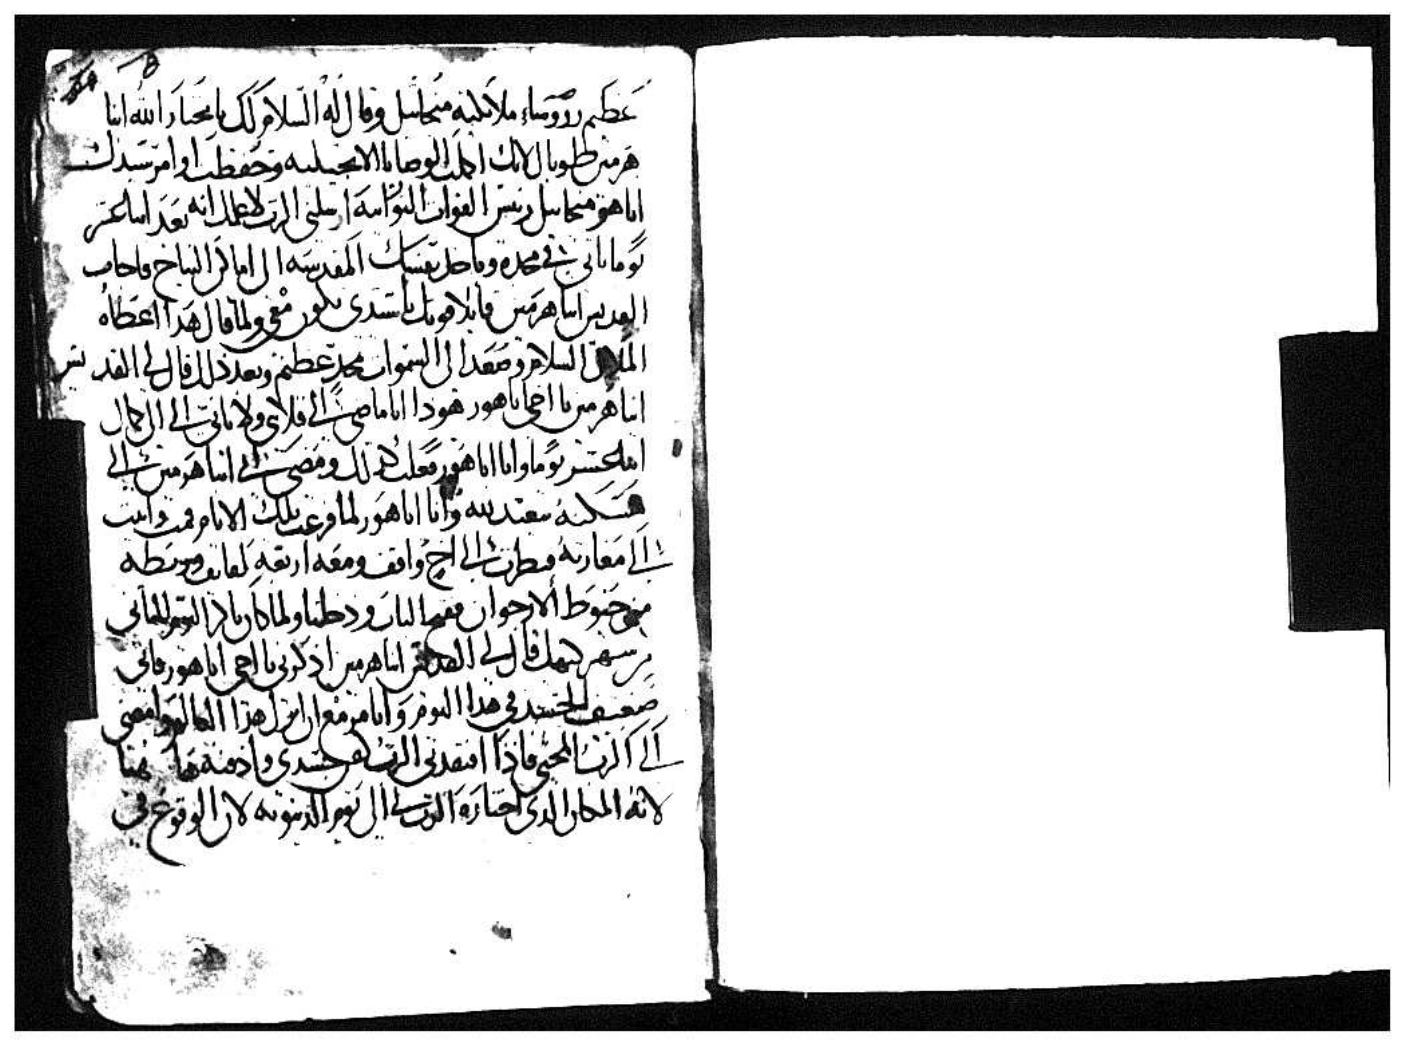 عظيم رووساء ملايكته ميخاييل وقال له السلام لك يا مختار الله انبا
هرمين طوباك لانك اكملت الوصايا الانجيليه وحفظت اوامر سيدك
انا هو ميخاييل رييس القوات السماييه ارسلني الرب لاعلمك انه بعد اثني عشر
يوما ياتي في مجده وياخد نفسك المقدسه الى اماكن النياح فاجاب
القديس انبا هرمين قايلا قوتك يا سيدي تكون معي ولما قال هدا اعطاه
الملاك السلام وصعد الى السموات بمجد عظيم وبعد دلك قال لي القديس
انبا هرمين يا اخي اباهور هودا انا ماضي الى قلايتي ولا ياتي الي الى كمال
اثني عشر يوما وانا اباهور فعلت كدلك ومضى انبا هرمين الى
مسكنه بمعيدلته وانا اباهور لما فرغت تلك الايام قمت واتيت
الى مغارته فنظرت الى اخ واقف ومعه اربعة لفايف ووسطه
من خيوط الارجوان ففتح الباب ودخلنا ولما كان باكر اليوم الثاني
من شهر كيهك قال لي القديس انبا هرمين ادكرني يا اخي اباهور فاني
ضعيف الجسد في هدا اليوم وانا مزمع ان اترك هدا العالم وامضي
الى الرب المحيي فادا افتقدني الرب كفن جسدي وادفنه ها هنا
لانه المكان الدي اختاره الرب لي الى يوم الدينونه لان الوقوع في